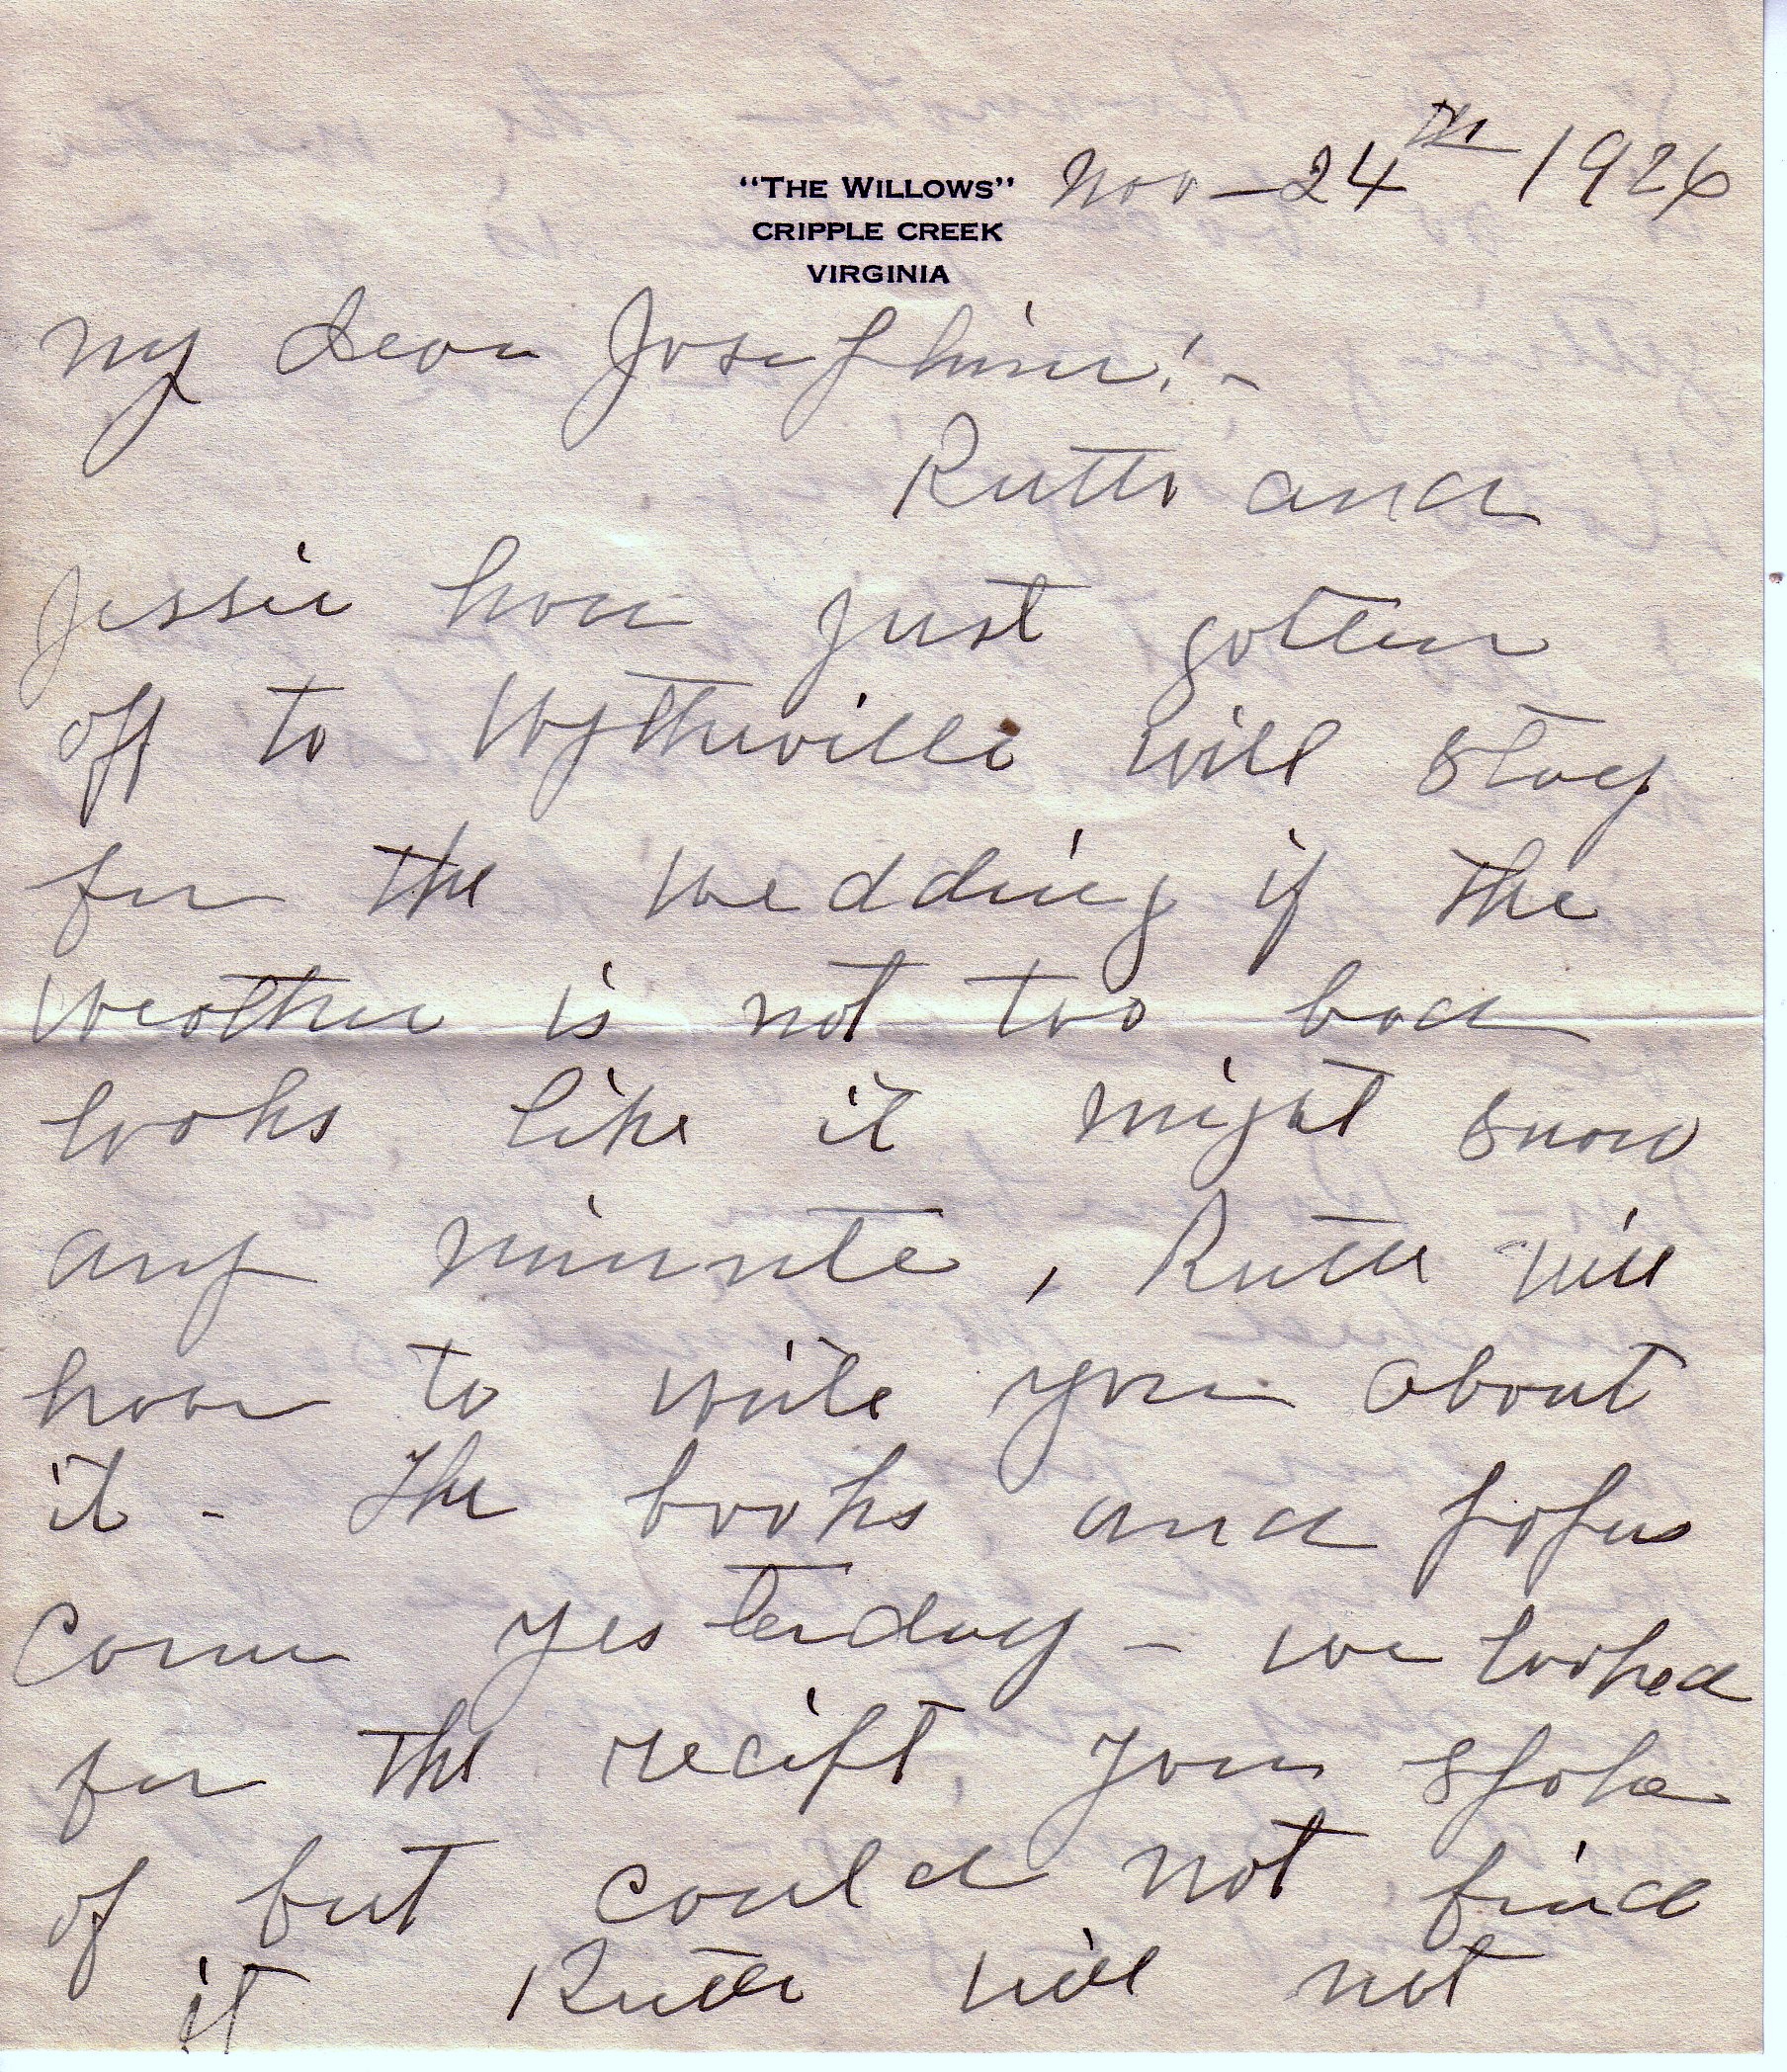 "THE WILLOWS"
CRIPPLE CREEK
VIRGINIA
Nov - 24th 1926
My dear Josephine: -
Ruth and
Jessie have just gotten
off to Wytheville will stay
for the wedding if the
weather is not too bad
looks like it might snow
any minute, Ruth will
have to write you about
it - The books and papers
come yesterday - we looked
for the recipt, you spoke
of but could not find
it Ruth will not